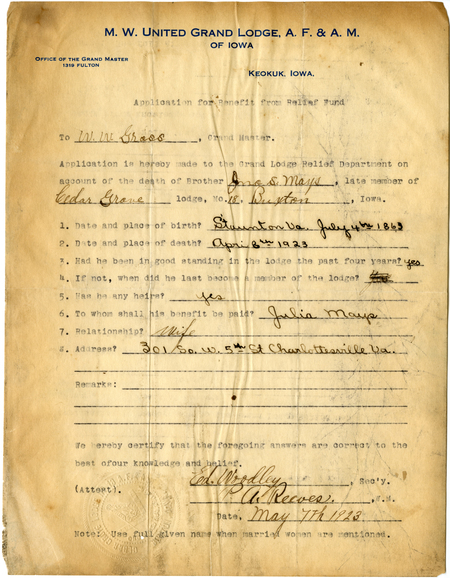 M. W. UNITED GRAND LODGE, A. F. & A. M.
OF IOWA
OFFICE OF THE GRAND MASTER
1319 FULTON
KEOKUK, IOWA.
Application for Benefit from Relief Fund
To W. W. Gross, Grand Master.
Application is hereby made to the Grand Lodge Relief Department on
account of the death of Brother Jno S. Mays, late member of
Cedar Grove lodge, No. 18. Buxton, Iowa.
1. Date and place of birth? Staunton Va. July 4th 1863
2. Date and place of death? April 8th 1923
3. Had he been in good standing in the lodge the past four years? yes
4. If not, when did he last become a member of the lodge?
5. Has he any heirs? yes
6. To whom shall his benefit be paid? Julia Mays
7. Relationship? Wife
8. Address? 301 So. W. 5th St Charlottesville Va.
Remarks:
We hereby certify that the foregoing answers are correct to the
best ofour knowledge and belief.
Ed. Woodley, Rec'y.
(Attest). P. A. Reeves, W.M.
Date, May 7th 1923.
Note: Use full given name when married women are mentioned.